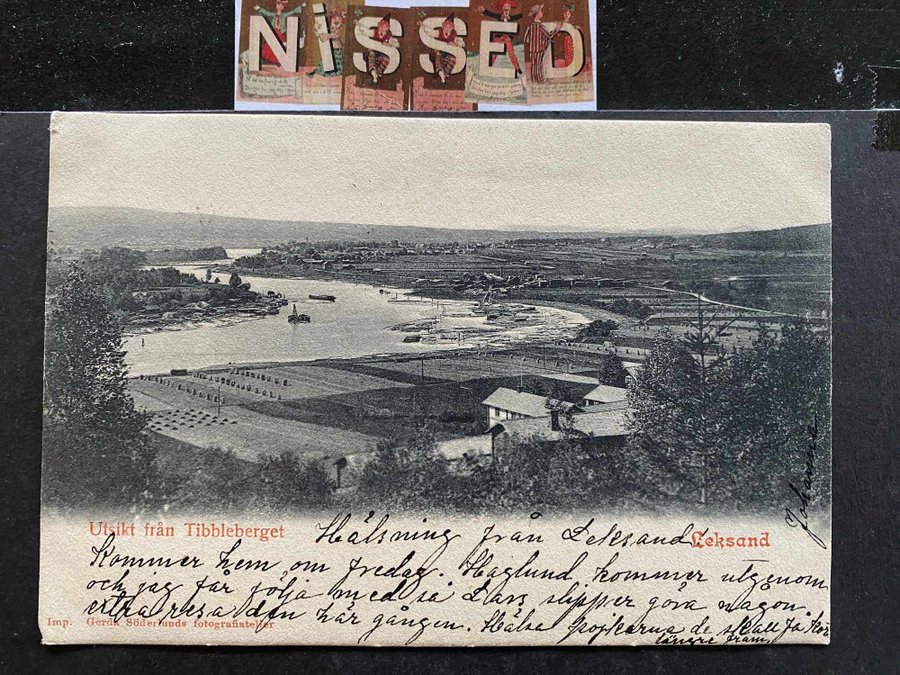 NISSED
Utsikt från Tibbleberget
Leksand
Hälsning från Leksand!
Kommer hem om fredag. Haglund kommer utgenom
och jag får följa med så Lars slipper göra någon
extra resa den här gången. Hälsa pojkarna de skall få
längre fram
Imp. Gerda Söderlunds fotografiateljer